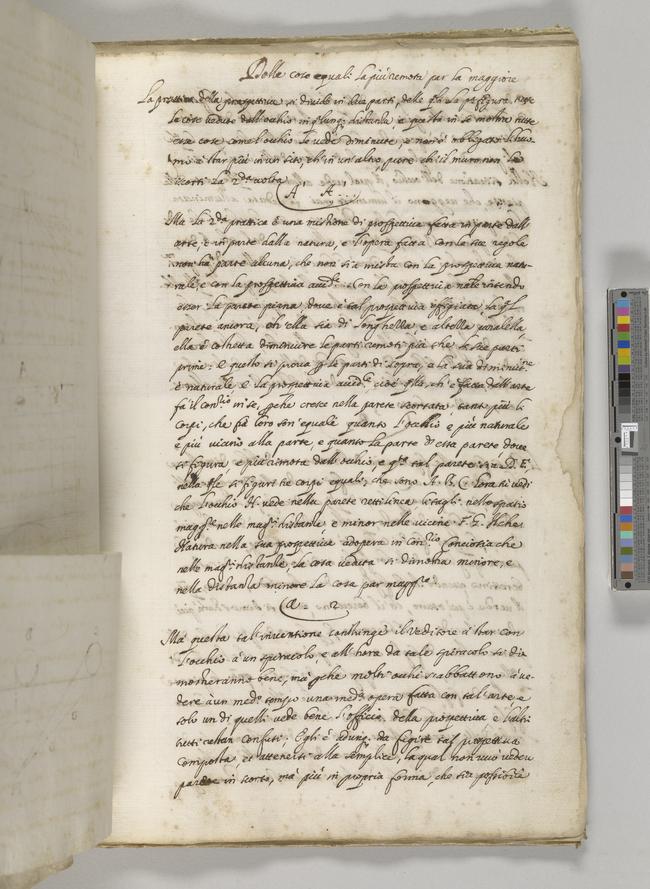 Delle cose equali la più remota par la maggiore
La prattica della prospettiva si divide in due parti, delle qli la pa figura tutte
le cose vedute dall'occhio in qlunq; distantia, e questa in se mostra tutte
esse cose come l'occhio le vede diminuite, e non è obbligato l'huo-
mo a star più in un sito, ch'in un'altro, pure ch'il muro non la
iscorti la 2da volta
A. A.
Ma la 2da prattica è una mistione di prospettiva fatta in parte dall'
arte, e in parte dalla natura, e l'opera fatta con le sue regole
non ha parte alcuna, che non sia mista con la prospettiva natu-
rale, e con la prospettiva accidle. Con la prospettiva natle intendo
esser la parete piana dove tal prospettiva è figurata, la ql
parete ancora, ch'ella sia di longhezza, e altezza paralella,
ella è costretta diminuire le parti remoti più che le sue parti
prime. E questo si prova p le parti di sopra, e la sua diminuitne
è naturale. E la prospettiva accidle cioè qlla, ch'è fatta dall'arte
fa il contrio in se, pche cresce nella parete scortata tanto più li
corpi, che fra loro son'equali quanto l'occhio è più naturale
e più vicino alla parte, e quanto la parte d'essa parete, dove
si figura, è più rimota dall'occhio, e qta tal parete sia D. E.
nella qle si figuri tre corpi equali, che sono A. B. C. Hora tu vedi
che l'occhio H. vede nella parete rettilinea li tagli nello spatio
maggre nelle maggri distantie, e minor nelle vicine F. G. H. che
Natura nella sua prospettiva adopera in contrio Conciosia che
nelle maggri distantie, la cosa veduta si dimostra minore, e
nella distantia minore la cosa par maggre.
a = 2
Ma questa tal'inventione constringe il veditore à star con
l'occhio à un spiracolo, e all'hora da tale spiracolo si di-
mostreranno bene; mà pche molti occhi s'abbattono à ve-
dere à un medo tempo una meda opera fatta con tal'arte, e
solo un di quelli vede bene l'officio della prospettiva, e l'altri
tutti restan confusi; Egli è adunq; da fugire tal prospettiva
composta, et attenersi alla semplice, la qual non vuol vedere
parete in scorto, mà più in propria forma, che sia possibile